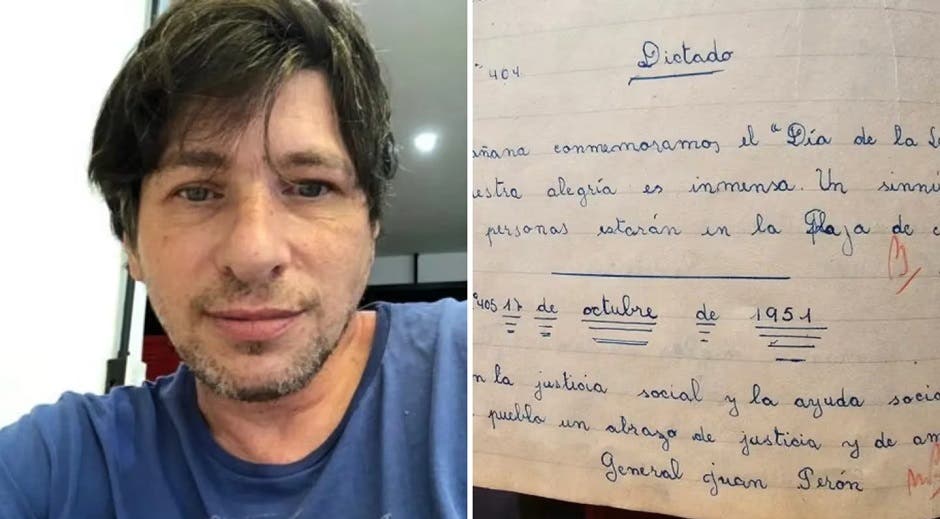 404 Dictado
añana conmemoramos el "Día de la L
estra alegría es inmensa. Un sinn
personas estarán en la Plaza de
405 17 de octubre de 1951
n la justicia social y la ayuda soci
puebla un abrazo de justicia y de am
General Juan Perón